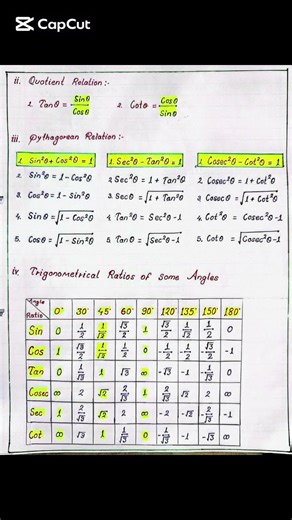 CapCut
ii. Quotient Relation:-
1. Tanθ = Sinθ/Cosθ 2. Cotθ = Cosθ/Sinθ
iii. Pythagorean Relation:-
1. Sin²θ + Cos²θ = 1 1. Sec²θ - Tan²θ = 1 1. Cosec²θ - Cot²θ = 1
2. Sin²θ = 1 - Cos²θ 2. Sec²θ = 1 + Tan²θ 2. Cosec²θ = 1 + Cot²θ
3. Cos²θ = 1 - Sin²θ 3. Secθ = √1 + Tan²θ 3. Cosecθ = √1 + Cot²θ
4. Sinθ = √1 - Cos²θ 4. Tan²θ = Sec²θ - 1 4. Cot²θ = Cosec²θ - 1
5. Cosθ = √1 - Sin²θ 5. Tanθ = √Sec²θ - 1 5. Cotθ = √Cosec²θ - 1
ix Trigonometrical Ratios of Some Angles
Angle Ratio 0° 30° 45° 60° 90° 120° 135° 150° 180°
Sin 0 1/2 1/√2 √3/2 1 √3/2 1/√2 1/2 0
Cos 1 √3/2 1/√2 1/2 0 -1/2 -1/√2 -1
Tan 0 1/√3 1 √3 ∞ -√3 -1 -1/√3 0
Cosec ∞ 2 √2 2/√3 1 2/√3 √2 2 ∞
Sec 1 2/√3 √2 2 ∞ -2 -√2 -2/√3 -1
Cot ∞ √3 1 1/√3 0 -1/√3 -1 -√3 ∞